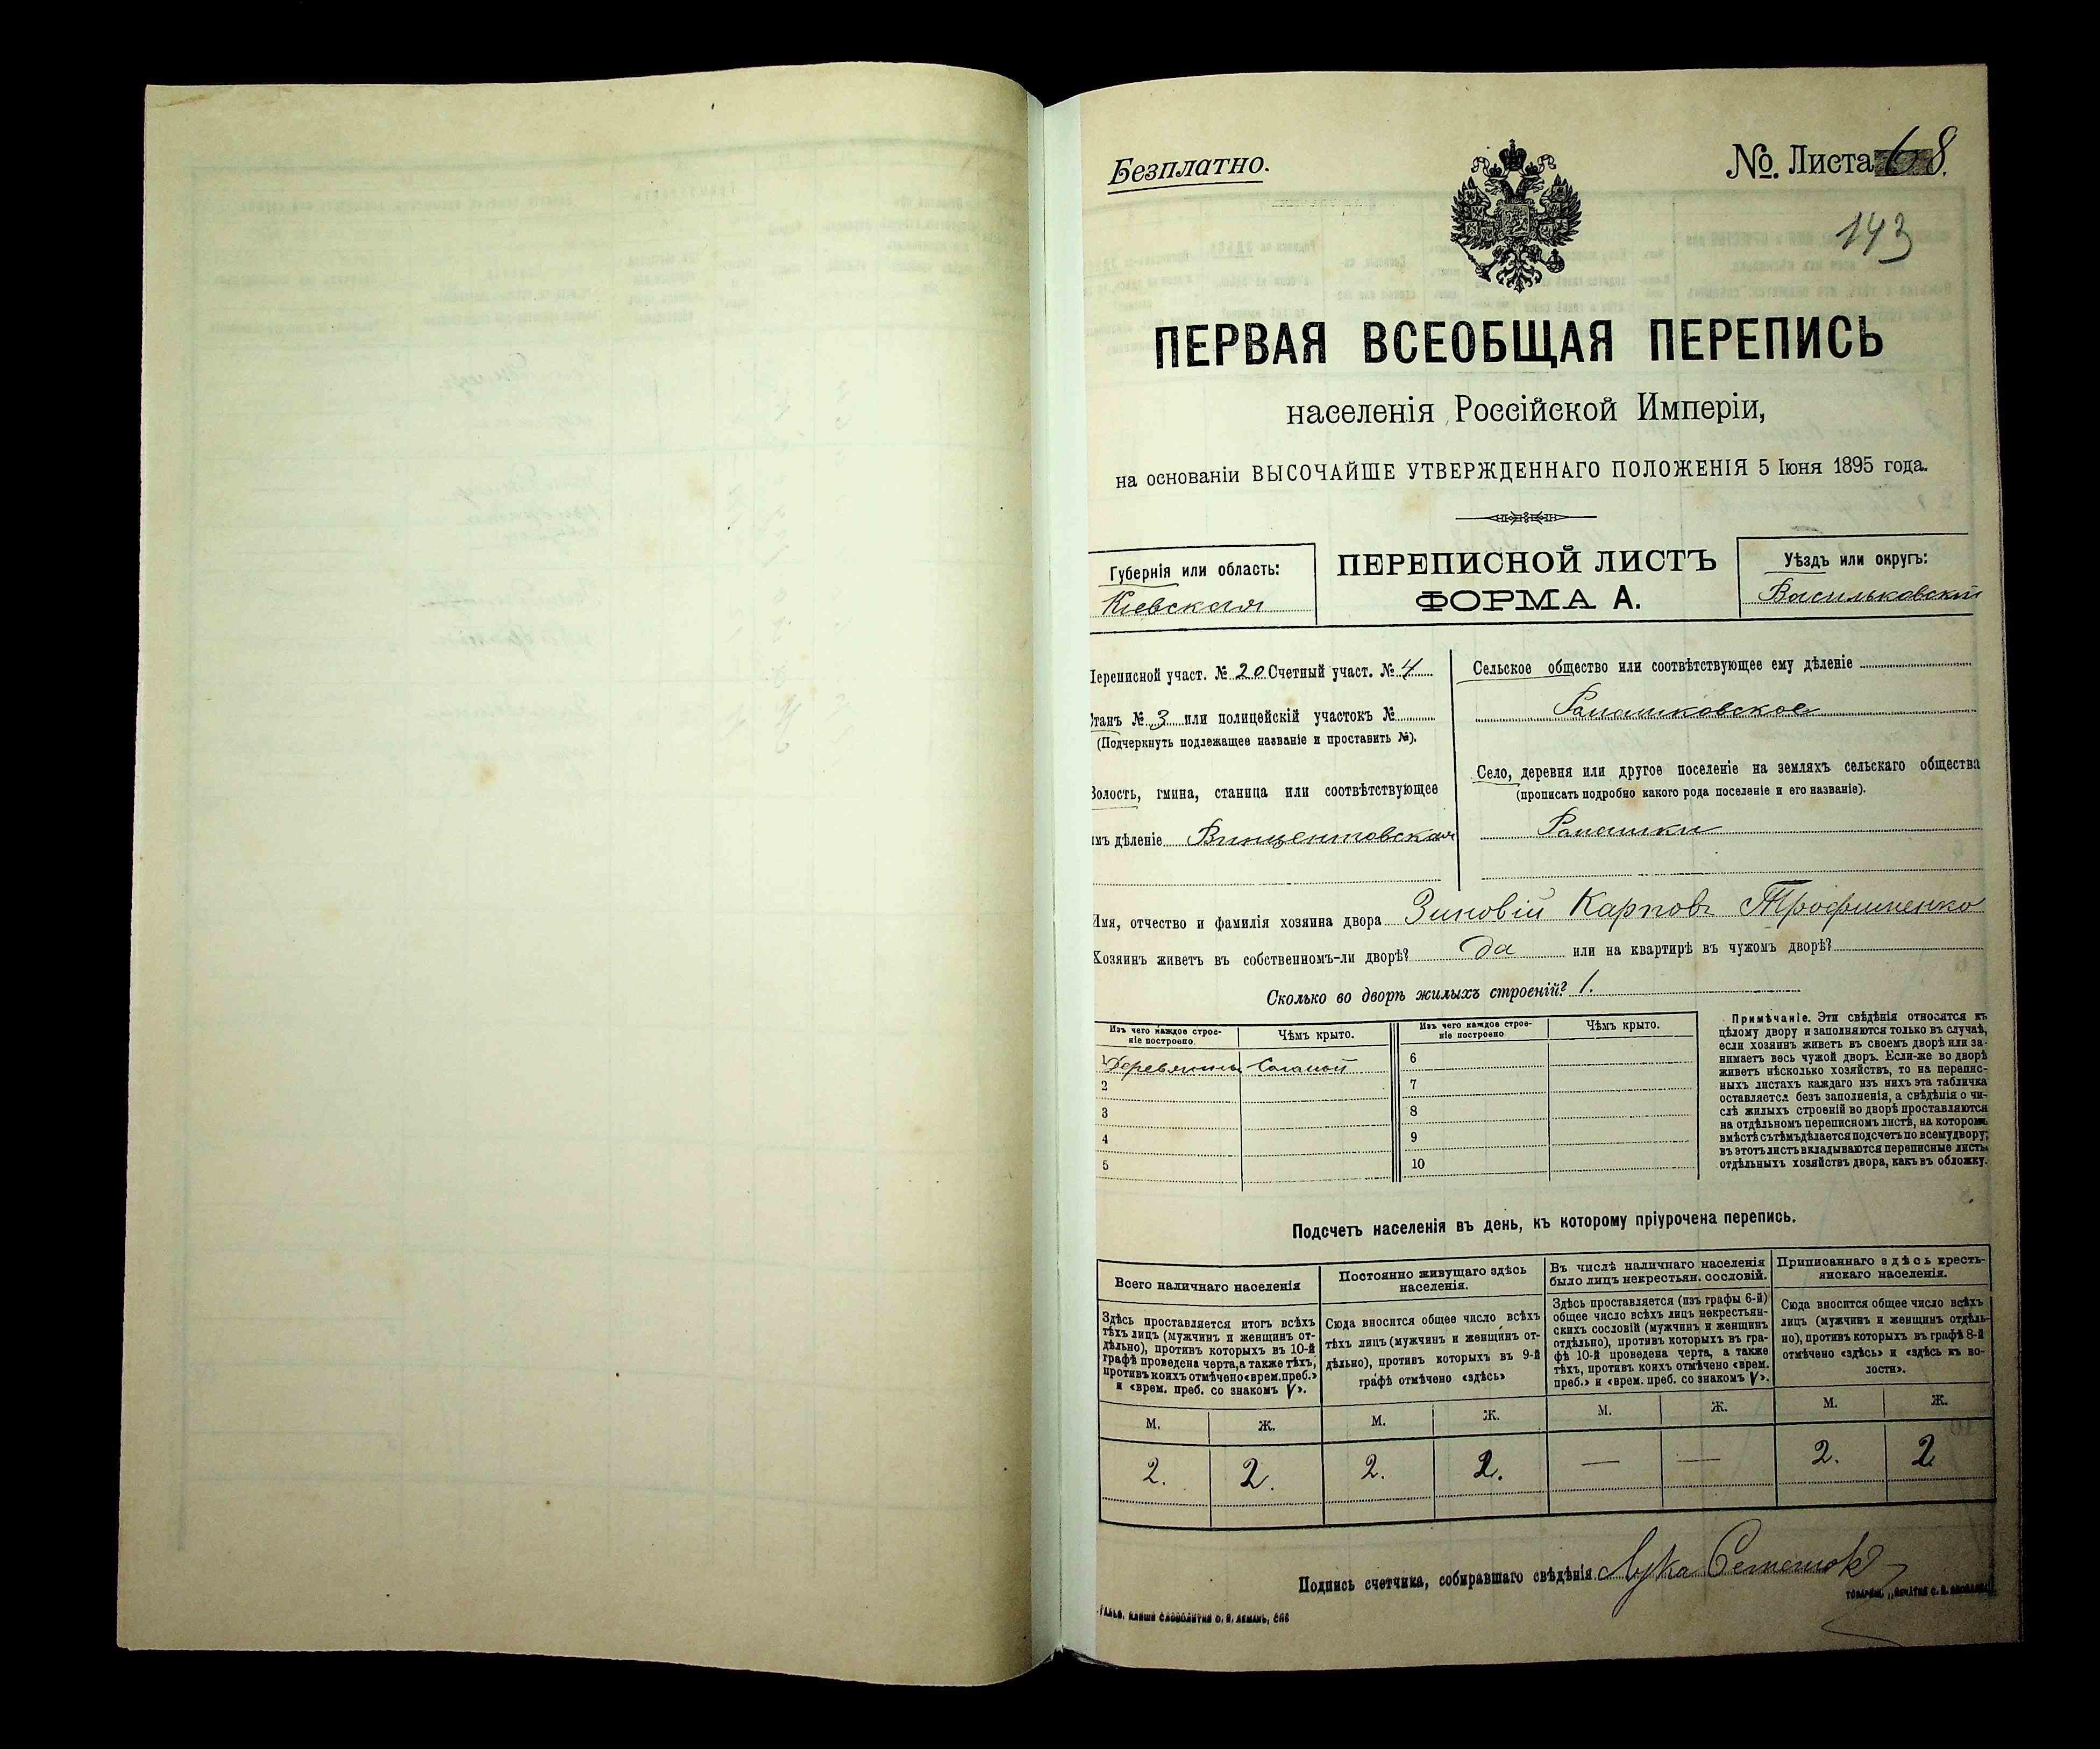 Безплатно.
№. Листа 68.
143
ПЕРВАЯ ВСЕОБЩАЯ ПЕРЕПИСЬ
населенія Россійской Имперіи,
на основаніи ВЫСОЧАЙШЕ УТВЕРЖДЕННАГО ПОЛОЖЕНІЯ 5 Іюня 1895 года.
Губернія или область:
Кіевская
ПЕРЕПИСНОЙ ЛИСТЪ
ФОРМА А.
Уѣздъ или округъ:
Васильковскій
Переписной участ. № 20 Счетный участ. № 4
Станъ № 3 или полицейскій участокъ №
(Подчеркнуть подлежащее названіе и проставить №).
Волость, гмина, станица или соотвѣтствующее
имъ дѣленіе Винцентовская
Сельское общество или соотвѣтствующее ему дѣленіе
Ромашковское
Село, деревня или другое поселеніе на земляхъ сельскаго общества
(прописать подробно какого рода поселеніе и его названіе).
Ромашки
Имя, отчество и фамилія хозяина двора Зиновій Карповъ Трофименко
Хозяинъ живетъ въ собственномъ-ли дворѣ? да или на квартирѣ въ чужомъ дворѣ?
Сколько во дворѣ жилыхъ строеній? 1.
Изъ чего каждое строе-
ніе построено.
Чѣмъ крыто.
Изъ чего каждое строе-
ніе построено
Чѣмъ крыто.
1 Деревянны Соломой
2
3
4
5
6
7
8
9
10
Примѣчаніе. Эти свѣдѣнія относятся къ
цѣлому двору и заполняются только въ случаѣ,
если хозяинъ живетъ въ своемъ дворѣ или за-
нимаетъ весь чужой дворъ. Если-же во дворѣ
живетъ нѣсколько хозяйствъ, то на перепис-
ныхъ листахъ каждаго изъ нихъ эта табличка
оставляется безъ заполненія, а свѣдѣнія о чи-
слѣ жилыхъ строеній во дворѣ проставляются
на отдѣльномъ переписномъ листѣ, на которомъ
вмѣстѣ съ тѣмъ дѣлается подсчетъ по всему двору;
въ этотъ листъ вкладываются переписные листы
отдѣльныхъ хозяйствъ двора, какъ въ обложку.
Подсчетъ населенія въ день, къ которому пріурочена перепись.
Всего наличнаго населенія
Здѣсь проставляется итогъ всѣхъ
тѣхъ лицъ (мужчинъ и женщинъ от-
дѣльно), противъ которыхъ въ 10-й
графѣ проведена черта, а также тѣхъ,
противъ коихъ отмѣчено «врем. преб.»
и «врем. преб. со знакомъ V».
Постоянно живущаго здѣсь
населенія.
Сюда вносится общее число всѣхъ
тѣхъ лицъ (мужчинъ и женщинъ от-
дѣльно), противъ которыхъ въ 9-й
графѣ отмѣчено «здѣсь»
Въ числѣ наличнаго населенія
было лицъ некрестьян. сословій.
Здѣсь проставляется (изъ графы 6-й)
общее число всѣхъ лицъ некрестьян-
скихъ сословій (мужчинъ и женщинъ
отдѣльно), противъ которыхъ въ гра-
фѣ 10-й проведена черта, а также
тѣхъ, противъ коихъ отмѣчено «врем.
преб.» и «врем. преб. со знакомъ V».
Приписаннаго здѣсь кресть-
янскаго населенія.
Сюда вносится общее число всѣхъ
лицъ (мужчинъ и женщинъ отдѣль-
но), противъ которыхъ въ графѣ 8-й
отмѣчено «здѣсь» и «здѣсь къ во-
лости».
М. Ж. М. Ж. М. Ж. М. Ж.
2. 2. 2. 2. — — 2. 2.
Подпись счетчика, собиравшаго свѣдѣнія Лука